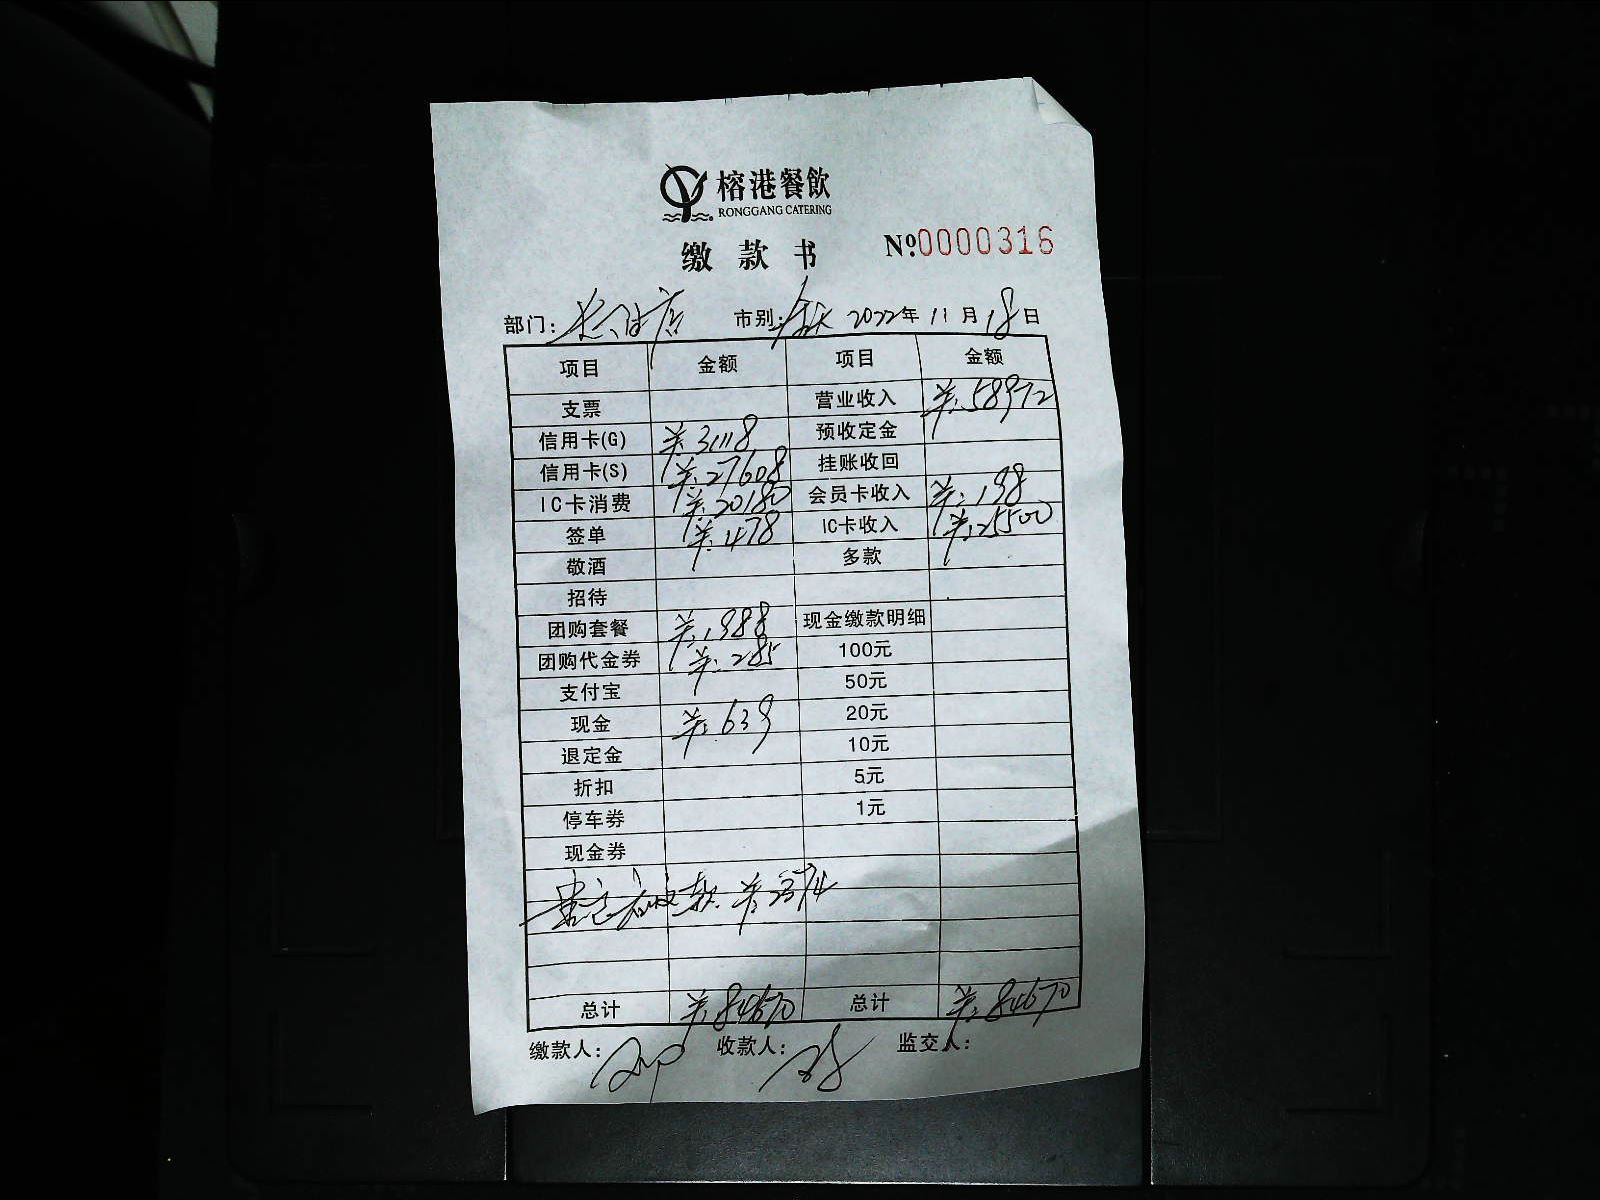 榕港餐飲
RONGGANG CATERING
缴款书 Nº.0000316
部门: 店 市别: 全天 2022年11月18日
项目 金额 项目 金额
支票 营业收入 ¥:58972
信用卡(G) ¥:3118 预收定金
信用卡(S) ¥:27608 挂账收回
IC卡消费 ¥:20180 会员卡收入 ¥:198
签单 ¥:478 IC卡收入 ¥:25500
敬酒 多款
招待
团购套餐 ¥:1988 现金缴款明细
团购代金券 ¥:285 100元
支付宝 50元
现金 ¥:639 20元
退定金 10元
折扣 5元
停车券 1元
现金券
款
总计 ¥:84670 总计 ¥:84670
缴款人: 收款人: 监交人: